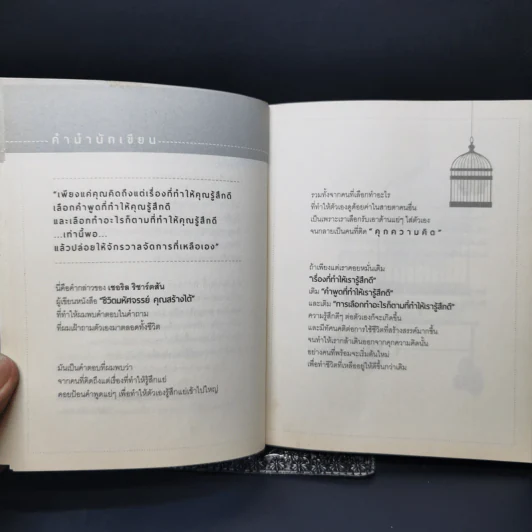 คำนำนักเขียน
"เพียงแค่คุณคิดถึงแต่เรื่องที่ทำให้คุณรู้สึกดี
เลือกคำพูดที่ทำให้คุณรู้สึกดี
และเลือกทำอะไรก็ตามที่ทำให้คุณรู้สึกดี
...เท่านี้พอ...
แล้วปล่อยให้จักรวาลจัดการที่เหลือเอง"
นี่คือคำกล่าวของ เชอริล ริชาร์ดสัน
ผู้เขียนหนังสือ "ชีวิตมหัศจรรย์ คุณสร้างได้"
ที่ทำให้ผมพบคำตอบในคำถาม
ที่ผมเฝ้าถามตัวเองมาตลอดทั้งชีวิต
มันเป็นคำตอบที่ผมพบว่า
จากคนที่คิดถึงแต่เรื่องที่ทำให้รู้สึกแย่
คอยป้อนคำพูดแย่ๆ เพื่อทำให้ตัวเองรู้สึกแย่เข้าไปใหญ่
รวมทั้งจากคนที่เลือกทำอะไร
ที่ทำให้ตัวเองดูด้อยค่าในสายตาคนอื่น
เป็นเพราะเราเลือกรับเอาด้านแย่ๆ ใส่ตัวเอง
จนกลายเป็นคนที่ติด "คุกความคิด"
ถ้าเพียงแต่เราคอยหมั่นเติม
"เรื่องที่ทำให้เรารู้สึกดี"
เติม "คำพูดที่ทำให้เรารู้สึกดี"
และเติม "การเลือกทำอะไรก็ตามที่ทำให้เรารู้สึกดี"
ความรู้สึกดีๆ ต่อตัวเองก็จะเกิดขึ้น
และมีทัศนคติต่อการใช้ชีวิตที่สร้างสรรค์มากขึ้น
จนทำให้เรากล้าเดินออกจากคุกความคิดนั้น
อย่างคนที่พร้อมจะเริ่มต้นใหม่
เพื่อทำชีวิตที่เหลืออยู่ให้ดีขึ้นกว่าเดิม